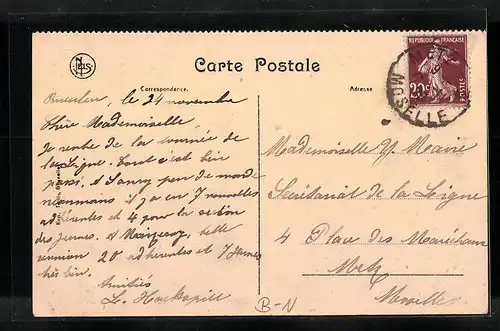 Carte Postale
Correspondance.
Adresse
REPUBLIQUE FRANÇAISE
POSTES
MOSELLE
le 24 novembre
Chère Mademoiselle,
Je rentre de la tournée de
la Ligue. Tout s'est bien
passé. A peu de monde
néanmoins il y a eu 7 nouvelles
adhérentes et 4 pour la section
des jeunes. A belle
réunion 20 adhérentes et 7 Jeunes
très bien.
Amitiés
L.
Mademoiselle Y. Marie
Secrétariat de la Ligue
4 Place des Maréchaux
Metz
Moselle
B-N